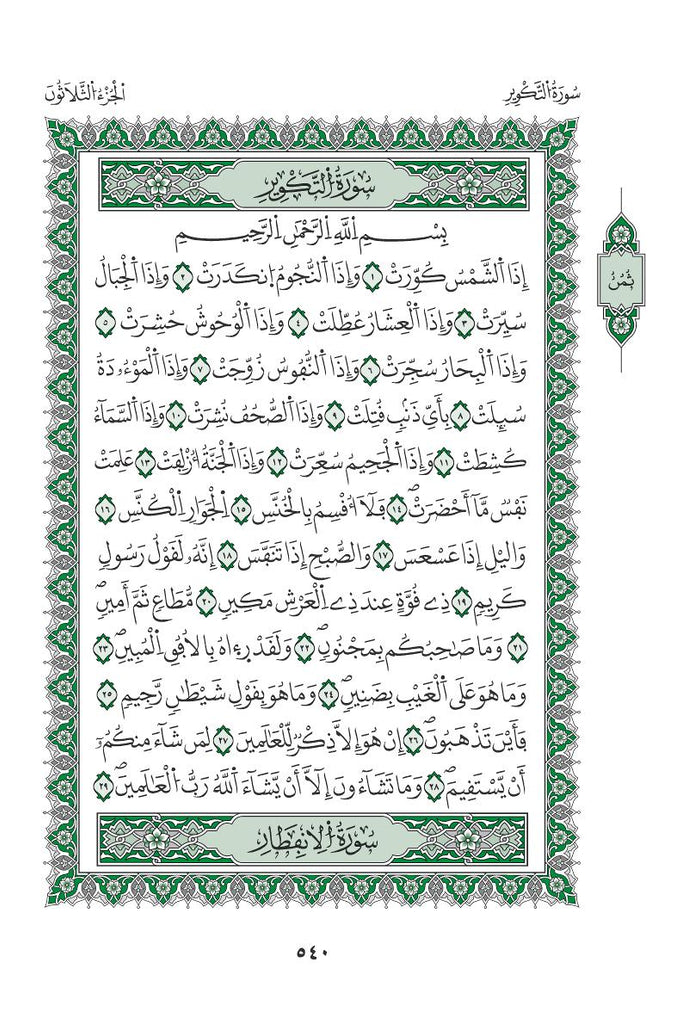 سُورَةُ التَّكْوِيرِ
الْجُزْءُ الثَّلَاثُونَ
سُورَةُ التَّكْوِيرِ
بِسْمِ اللَّهِ الرَّحْمَٰنِ الرَّحِيمِ
إِذَا الشَّمْسُ كُوِّرَتْ ١ وَإِذَا النُّجُومُ انكَدَرَتْ ٢ وَإِذَا الْجِبَالُ
ثُمُنُ
سُيِّرَتْ ٣ وَإِذَا الْعِشَارُ عُطِّلَتْ ٤ وَإِذَا الْوُحُوشُ حُشِرَتْ ٥
وَإِذَا الْبِحَارُ سُجِّرَتْ ٦ وَإِذَا النُّفُوسُ زُوِّجَتْ ٧ وَإِذَا الْمَوْءُۥدَةُ
سُئِلَتْ ٨ بِأَيِّ ذَنۢبٍ قُتِلَتْ ٩ وَإِذَا الصُّحُفُ نُشِرَتْ ١٠ وَإِذَا السَّمَآءُ
كُشِطَتْ ١١ وَإِذَا الْجَحِيمُ سُعِّرَتْ ١٢ وَإِذَا الْجَنَّةُ أُزْلِفَتْ ١٣ عَلِمَتْ
نَفْسٌ مَّا أَحْضَرَتْ ١٤ فَلَا أُقْسِمُ بِالْخُنَّسِ ١٥ الْجَوَارِ الْكُنَّسِ ١٦
وَالَّيْلِ إِذَا عَسْعَسَ ١٧ وَالصُّبْحِ إِذَا تَنَفَّسَ ١٨ إِنَّهُۥ لَقَوْلُ رَسُولٍ
كَرِيمٍ ١٩ ذِے قُوَّةٍ عِندَ ذِے الْعَرْشِ مَكِينٍ ٢٠ مُّطَاعٍ ثَمَّ أَمِينٍ
٢١ وَمَا صَاحِبُكُم بِمَجْنُونٍ ٢٢ وَلَقَدْ رَءَاهُ بِالْأُفُقِ الْمُبِينِ ٢٣
وَمَا هُوَ عَلَى الْغَيْبِ بِضَنِينٍ ٢٤ وَمَا هُوَ بِقَوْلِ شَيْطَٰنٍ رَّجِيمٍ ٢٥
فَأَيْنَ تَذْهَبُونَ ٢٦ إِنْ هُوَ إِلَّا ذِكْرٌ لِّلْعَالَمِينَ ٢٧ لِمَن شَآءَ مِنكُمُۥٓ
أَنْ يَّسْتَقِيمَ ٢٨ وَمَا تَشَآءُونَ إِلَّآ أَنْ يَّشَآءَ اللَّهُ رَبُّ الْعَالَمِينَ ٢٩
سُورَةُ الِانفِطَارِ
٥٤٠